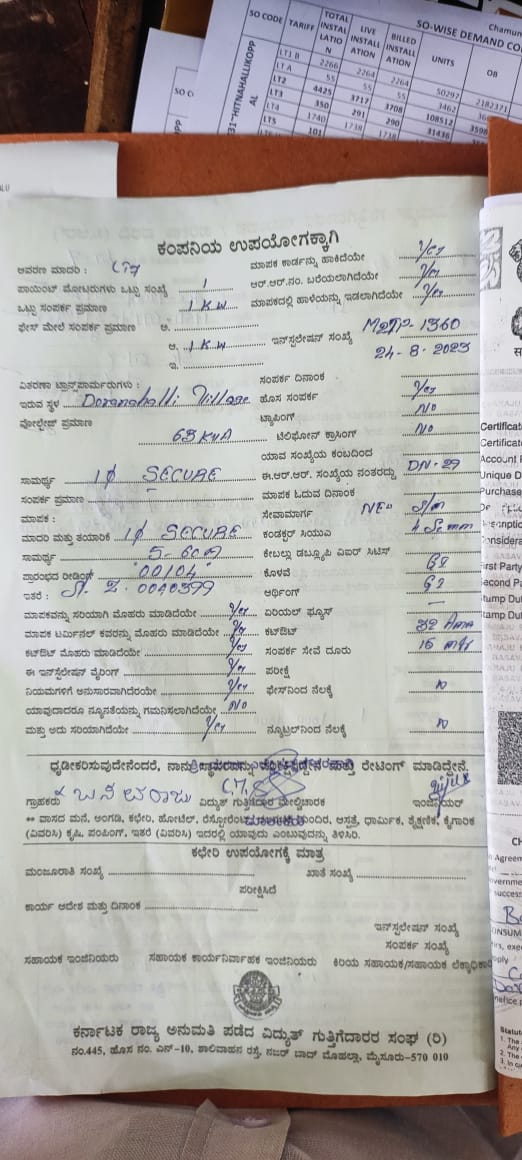 Chamun
SO-WISE DEMAND CO
SO CODE TARIFF TOTAL INSTAL LATIO N LIVE INSTALL ATION BILLED INSTALL ATION UNITS OB
LT1 B 2266 2264 2264 50297 2182371
LT A 55 55 55 3462
LT2 4425 3717 3708 108512
LT3 350 291 290 31436
LT4 1740 1738 1738
LT5 101
ಕಂಪನಿಯ ಉಪಯೋಗಕ್ಕಾಗಿ
ಆವರಣ ಮಾದರಿ : ಮಾಪಕ ಕಾರ್ಡನ್ನು ಹಾಕಿದೆಯೇ Yes
ಪಾಯಿಂಟ್ ಮೋಟರುಗಳು ಒಟ್ಟು ಸಂಖ್ಯೆ 1 ಆರ್.ಆರ್.ನಂ. ಬರೆಯಲಾಗಿದೆಯೇ Yes
ಒಟ್ಟು ಸಂಪರ್ಕ ಪ್ರಮಾಣ 1 KW ಮಾಪಕದಲ್ಲಿ ಹಾಳೆಯನ್ನು ಇಡಲಾಗಿದೆಯೇ Yes
ಫೇಸ್ ಮೇಲೆ ಸಂಪರ್ಕ ಪ್ರಮಾಣ ಅ.
ಆ. 1 KW ಇನ್‌ಸ್ಟಲೇಷನ್ ಸಂಖ್ಯೆ 1360
ಇ. 24-8-2023
ವಿತರಣಾ ಟ್ರಾನ್ಸ್‌ಫಾರ್ಮರುಗಳು : ಸಂಪರ್ಕ ದಿನಾಂಕ
ಇರುವ ಸ್ಥಳ Doranahalli Village ಹೊಸ ಸಂಪರ್ಕ Yes
ವೋಲ್ಟೇಜ್ ಪ್ರಮಾಣ ಟ್ಯಾಪಿಂಗ್ No
63 KVA ಟೆಲಿಫೋನ್ ಕ್ರಾಸಿಂಗ್ No
ಯಾವ ಸಂಖ್ಯೆಯ ಕಂಬದಿಂದ
ಸಾಮರ್ಥ್ಯ 1φ SECURE ಈ.ಆರ್.ಆರ್. ಸಂಖ್ಯೆಯ ನಂತರದ್ದು DN-29
ಸಂಪರ್ಕ ಪ್ರಮಾಣ ಮಾಪಕ ಓದುವ ದಿನಾಂಕ
ಮಾಪಕ : ಸೇವಾಮಾರ್ಗ
ಮಾದರಿ ಮತ್ತು ತಯಾರಿಕೆ 1φ SECURE ಕಂಡಕ್ಟರ್ ಸಿಯುಎ
ಸಾಮರ್ಥ್ಯ 5-60A ಕೇಬಲ್ಲು ಡಬ್ಲ್ಯೂಪಿ ವಿಐರ್ ಸಿಟಿಸ್
ಪ್ರಾರಂಭದ ರೀಡಿಂಗ್ 00104 ಕೊಳವೆ
ಇತರೆ : ಅರ್ಥಿಂಗ್
ಮಾಪಕವನ್ನು ಸರಿಯಾಗಿ ಮೊಹರು ಮಾಡಿದೆಯೇ Yes ವಿರಿಯಲ್ ಫ್ಯೂಸ್ —
ಮಾಪಕ ಟರ್ಮಿನಲ್ ಕವರನ್ನು ಮೊಹರು ಮಾಡಿದೆಯೇ Yes ಕಟ್‌ಔಟ್ 32
ಕಟ್‌ಔಟ್ ಮೊಹರು ಮಾಡಿದೆಯೇ Yes ಸಂಪರ್ಕ ಸೇವೆ ದೂರು 15
ಈ ಇನ್‌ಸ್ಟಲೇಷನ್ ವೈರಿಂಗ್ Yes ಪರೀಕ್ಷೆ
ನಿಯಮಗಳಿಗೆ ಅನುಸಾರವಾಗಿದೆಯೇ Yes ಫೇಸ್‌ನಿಂದ ನೆಲಕ್ಕೆ
ಯಾವುದಾದರೂ ನ್ಯೂನತೆಯನ್ನು ಗಮನಿಸಲಾಗಿದೆಯೇ No
ಮತ್ತು ಅದು ಸರಿಯಾಗಿದೆಯೇ Yes ನ್ಯೂಟ್ರಲ್‌ನಿಂದ ನೆಲಕ್ಕೆ
ಧೃಡೀಕರಿಸುವುದೇನೆಂದರೆ, ನಾನು ಮತ್ತು ರೇಟಿಂಗ್ ಮಾಡಿದ್ದೇನೆ.
ಗ್ರಾಹಕರು ಬಸವರಾಜು ವಿದ್ಯುತ್ ಗುತ್ತಿಗೆದಾರ ಮೇಲ್ವಿಚಾರಕ ಇಂಜಿನಿಯರ್
** ವಾಸದ ಮನೆ, ಅಂಗಡಿ, ಕಛೇರಿ, ಹೋಟೆಲ್, ಆಸ್ಪತ್ರೆ, ಧಾರ್ಮಿಕ, ಶೈಕ್ಷಣಿಕ, ಕೈಗಾರಿಕೆ
(ವಿವರಿಸಿ) ಕೃಷಿ, ಪಂಪಿಂಗ್, ಇತರೆ (ವಿವರಿಸಿ) ಇದರಲ್ಲಿ ಯಾವುದು ಎಂಬುವುದನ್ನು ತಿಳಿಸಿರಿ.
ಕಛೇರಿ ಉಪಯೋಗಕ್ಕೆ ಮಾತ್ರ
ಮಂಜೂರಾತಿ ಸಂಖ್ಯೆ ಖಾತೆ ಸಂಖ್ಯೆ
ಪರೀಕ್ಷಿಸಿದೆ
ಕಾರ್ಯ ಆದೇಶ ಮತ್ತು ದಿನಾಂಕ
ಇನ್‌ಸ್ಟಲೇಷನ್ ಸಂಖ್ಯೆ
ಸಂಪರ್ಕ ಸಂಖ್ಯೆ
ಸಹಾಯಕ ಇಂಜಿನಿಯರು ಸಹಾಯಕ ಕಾರ್ಯನಿರ್ವಾಹಕ ಇಂಜಿನಿಯರು ಕಿರಿಯ ಸಹಾಯಕ/ಸಹಾಯಕ ಲೆಕ್ಕಾಧಿಕಾರಿ
ಕರ್ನಾಟಕ ರಾಜ್ಯ ಅನುಮತಿ ಪಡೆದ ವಿದ್ಯುತ್ ಗುತ್ತಿಗೆದಾರರ ಸಂಘ (ರಿ)
ನಂ.445, ಹೊಸ ನಂ. ಎನ್-10, ಶಾಲಿವಾಹನ ರಸ್ತೆ, ನಜರ್ ಬಾದ್ ಮೊಹಲ್ಲಾ, ಮೈಸೂರು-570 010
Certificate
Certificate
Account R
Unique D
Purchase
First Party
Second Pa
Stamp Dut
Stamp Dut